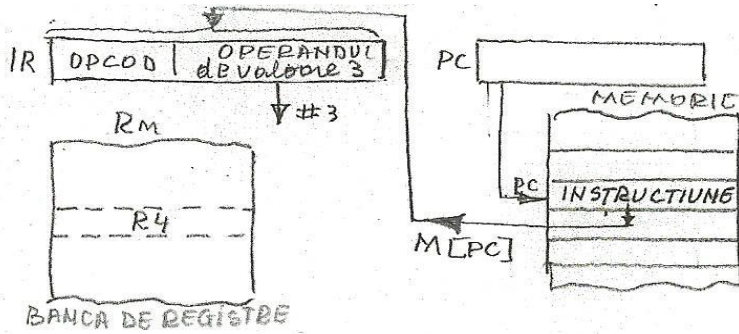 IR OPCOD OPERANDUL
de valoare 3
#3
PC
MEMORIE
Rm
R4
PC INSTRUCTIUNE
M[PC]
BANCA DE REGISTRE